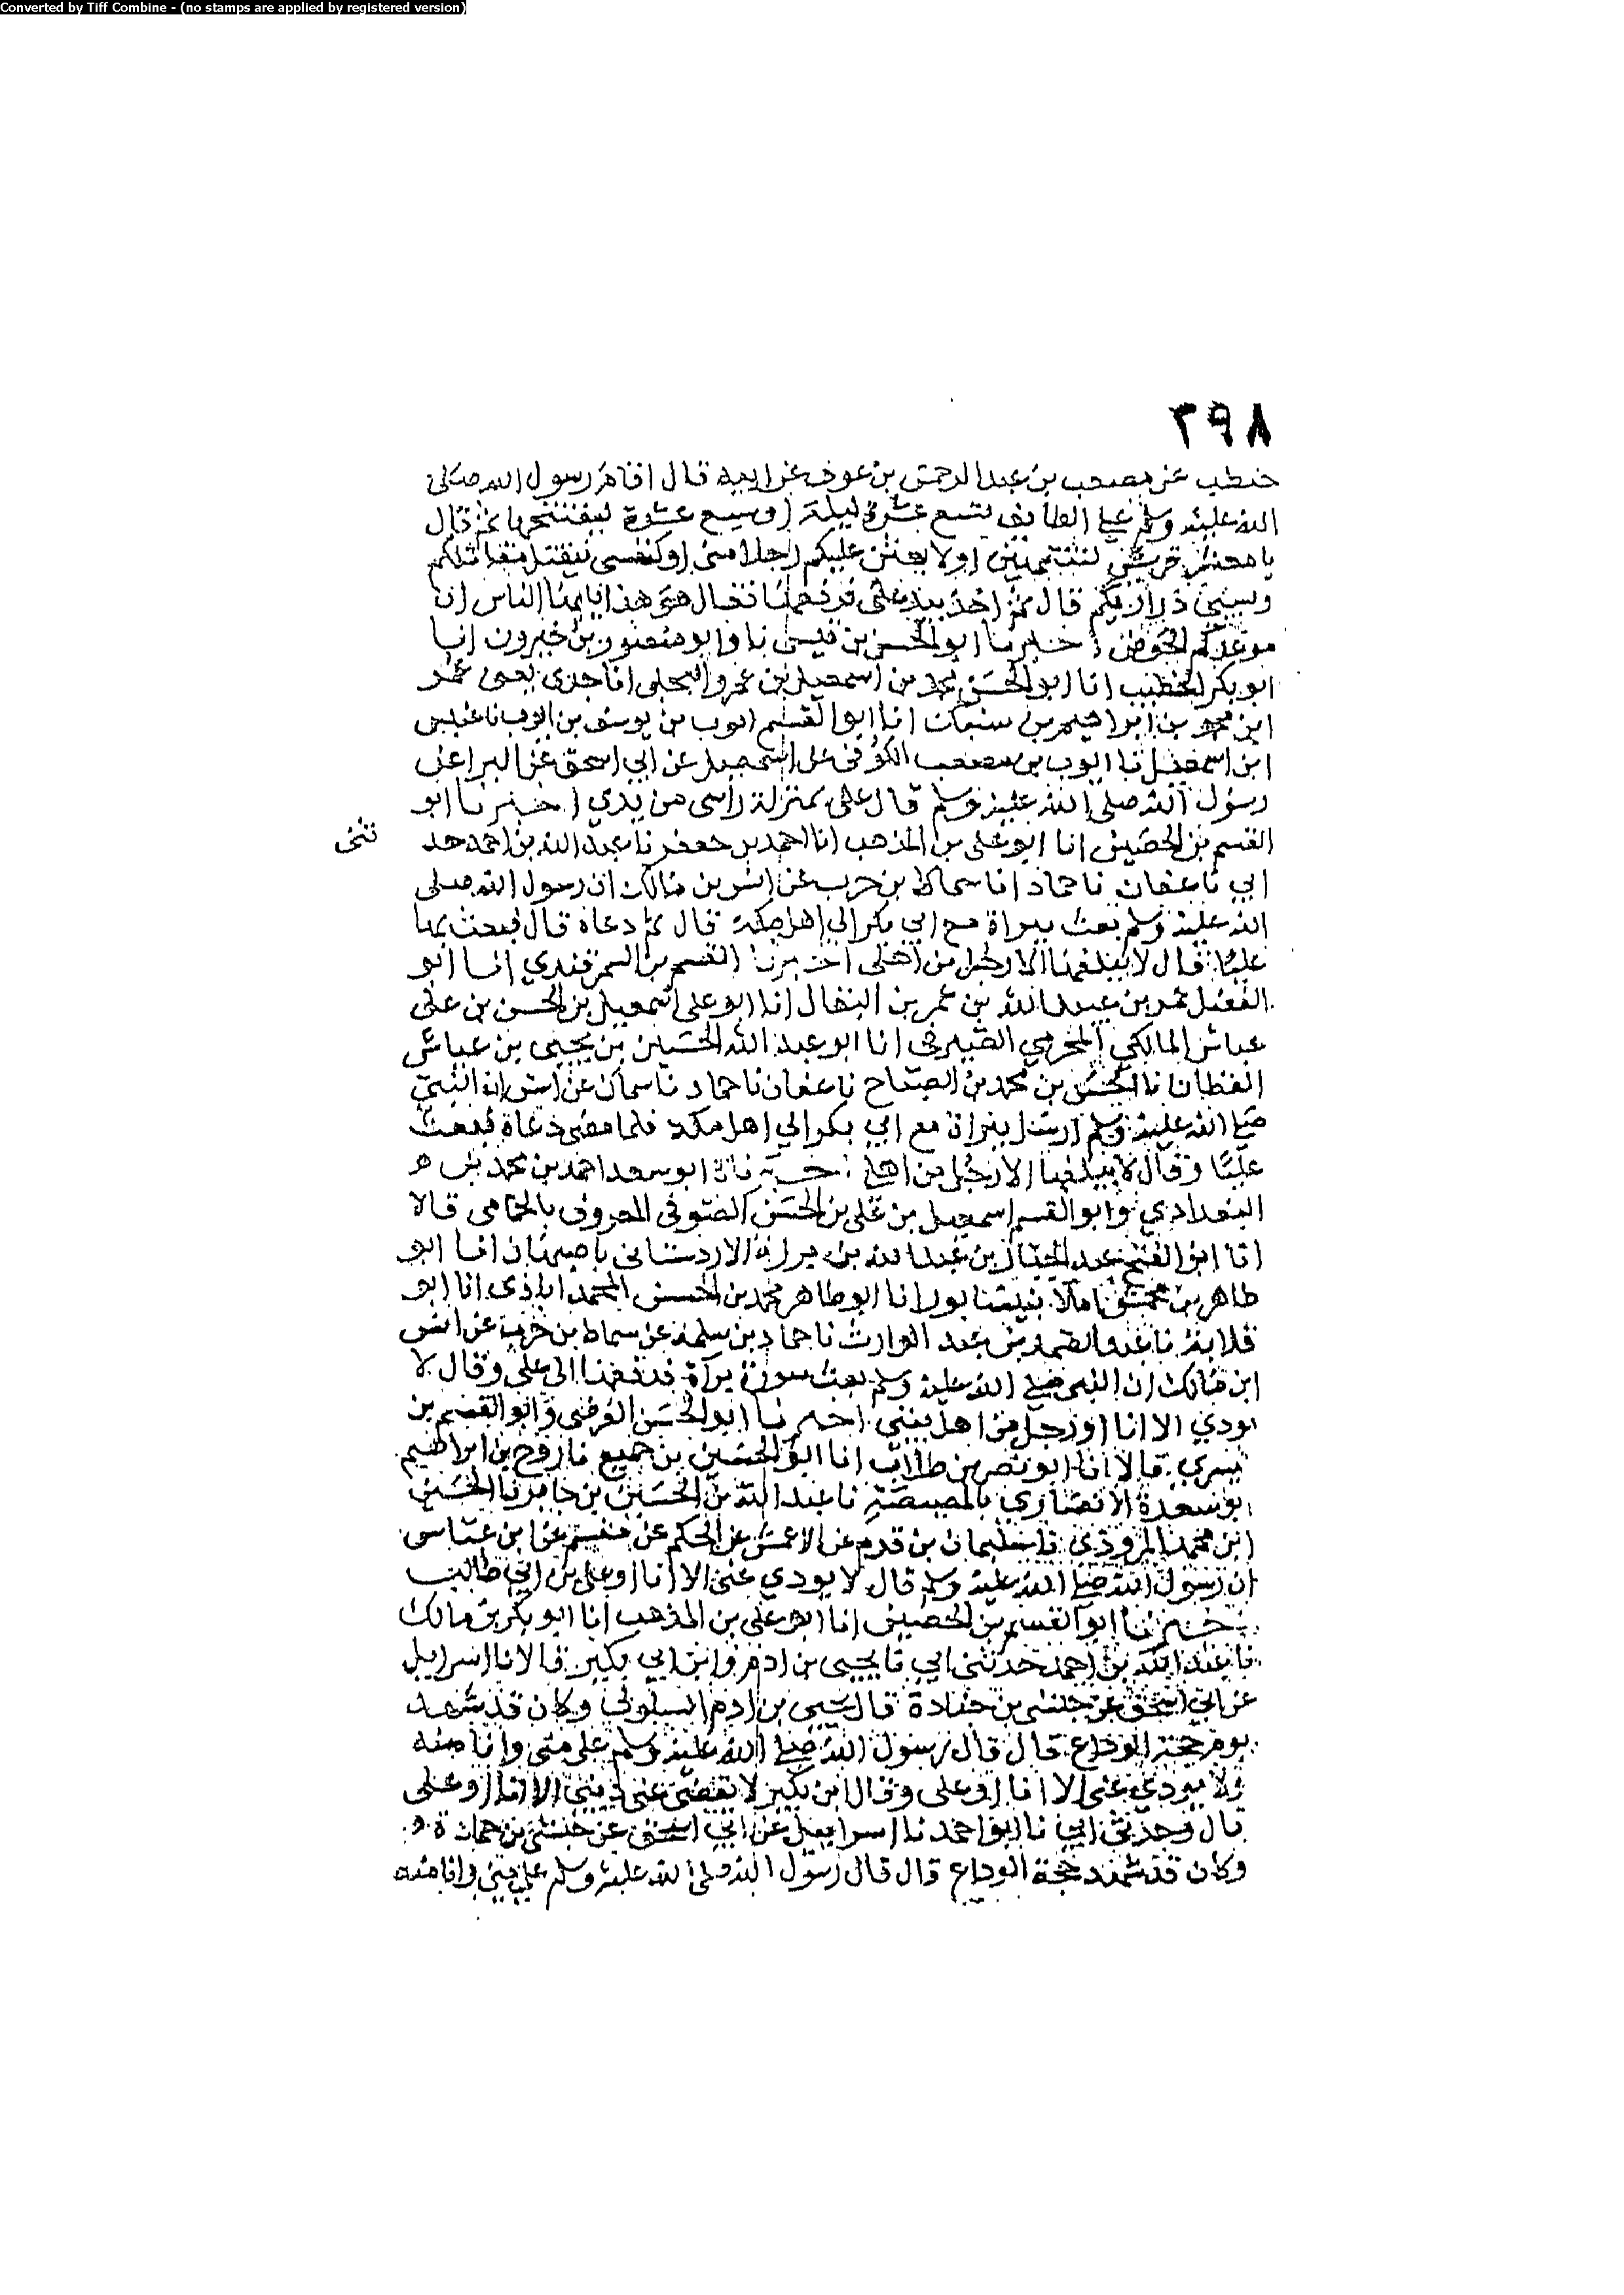 Converted by Tiff Combine - (no stamps are applied by registered version)
٣٩٨
حنطب عن مصعب بن عبد الرحمن بن عوف عن ابيه قال اقام رسول الله صلى
الله عليه وسلم على الطائف تسع عشرة ليلة او سبع عشرة ليفتتحها ثم قال
يا معشر قريش لتنتهين او لابعثن عليكم رجلا مني او كنفسي فيقتل مقاتلتكم
وسبي ذراريكم قال ثم اخذ بيد علي فرفعها فقال هو هذا ايها الناس ان
موعدكم الحوض اخبرنا ابو الحسن بن قبيس نا وابو منصور بن خيرون انا
ابو بكر الخطيب انا ابو الحسن محمد بن اسمعيل بن عمرو البجلي انا جدي يعني عمر
ابن محمد بن ابراهيم بن سنبك انا ابو القسم ايوب بن يوسف بن ايوب نا عنبس
ابن اسمعيل نا ايوب بن مصعب الكوفي عن اسمعيل عن ابي اسحق عن البراعن
رسول الله صلى الله عليه وسلم قال علي بمنزلة راسي من بدي اخبرنا ابو
القسم بن الحصين انا ابو علي بن المذهب انا احمد بن جعفر نا عبد الله بن احمد حد
ثني
ابي نا عفان نا حماد انا سماك بن حرب عن انس بن مالك ان رسول الله صلى
الله عليه وسلم بعث ببراة مع ابي بكر الى اهل مكة قال ثم دعاه قال فبعث بها
عليا قال لا يبلغها الا رجل من اهلي اخبرنا القسم بن السمرقندي انا ابو
الفضل عمر بن عبيد الله بن عمر بن البقال انا ابو علي اسمعيل بن الحسن بن علي
عباش المالكي المخرمي الصيرفي انا ابو عبد الله الحسين بن يحيى بن عباش
القطان نا الحسن بن محمد بن الصباح نا عفان نا حماد نا سماك عن انس ان النبي
صلى الله عليه وسلم ارسل ببراة مع ابي بكر الى اهل مكة فلما مضى دعاه فبعث
عليا وقال لا يبلغها الا رجل من اهلي اخبرنا ابو سعد احمد بن محمد بن
البغدادي وابو القسم اسمعيل بن علي بن الحسن الصوفي المعروف بالحمامي قالا
انا ابو الفتح عبد الجبار بن عبد الله بن برزة الاردستاني باصبهان انا ابو
طاهر بن محمش املا بنيسابور انا ابو طاهر محمد بن الحسن المحمداباذي انا ابو
قلابة نا عبد الصمد بن عبد الوارث نا حماد بن سلمة عن سماك بن حرب عن انس
ابن مالك ان النبي صلى الله عليه وسلم بعث سورة براة فدفعها الى علي وقال لا
يودي الا انا او رجل من اهل بيتي اخبرنا ابو الحسن الفرضي وابو القسم بن
قالا انا ابو نصر بن طلاب انا ابو الحسين بن جميع نا روح بن ابراهيم
ابو سعدة الانصاري بالمصيصة نا عبد الله بن الحسين بن جابر نا الحسين
ابن محمد المروذي نا سليمان بن قرم عن الاعمش عن الحكم عن مقسم عن ابن عباس
ان رسول الله صلى الله عليه وسلم قال لا يودي عني الا انا او علي بن ابي طالب
اخبرنا ابو القسم بن الحصين انا ابو علي بن المذهب انا ابو بكر بن مالك
نا عبد الله بن احمد حدثني ابي نا يحيى بن ادم وابن ابي بكير قالا نا اسرايل
عن ابي اسحق عن حبشي بن جنادة قال يحيى بن ادم السلولي وكان قد شهد
يوم حجة الوداع قال قال رسول الله صلى الله عليه وسلم علي مني وانا منه
ولا يودي عني الا انا او علي وقال ابن بكير لا يقضي عني ديني الا انا او علي
قال وحدثني ابي نا ابو احمد نا اسرايل عن ابي اسحق عن حبشي بن جنادة
وكان قد شهد حجة الوداع قال قال رسول الله صلى الله عليه وسلم علي مني وانا منه